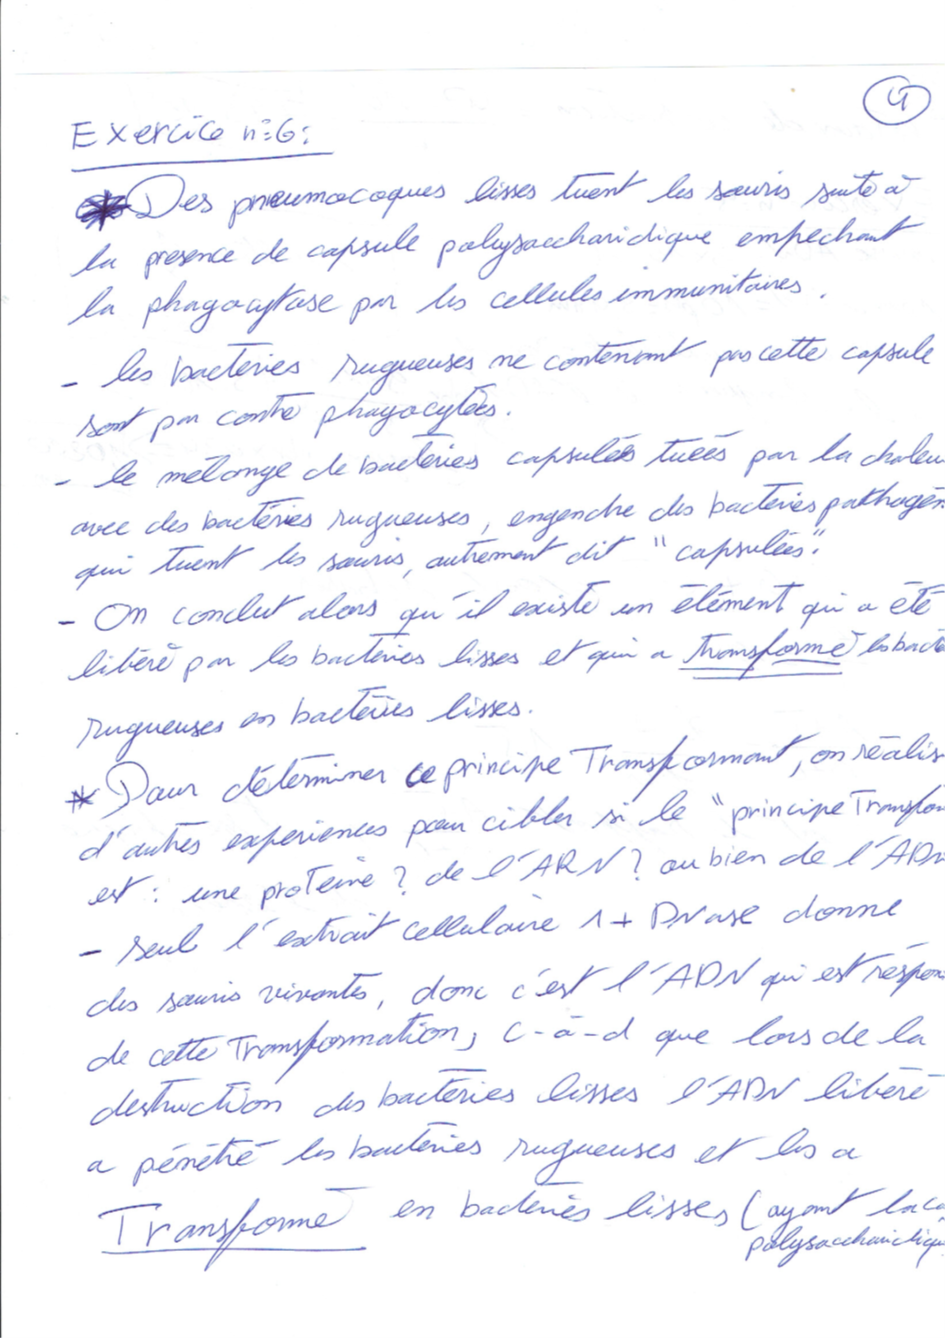 4
Exercice n°6:
* Des pneumocoques lisses tuent les souris suite à
la presence de capsule polysaccharidique empechant
la phagocytose par les cellules immunitaires.
- les bactéries rugueuses ne contenant pas cette capsule
sont par contre phagocytées.
- le mélange de bactéries capsulées tuées par la chaleu
avec des bactéries rugueuses, engendre des bactéries pathogèn
qui tuent les souris, autrement dit "capsulées".
- On conclut alors qu'il existe un élément qui a été
libéré par les bactéries lisses et qui a transformé les bacté
rugueuses en bactéries lisses.
* Pour déterminer ce principe Transformant, on réalis
d'autres experiences pour cibler si le "principe Transfor
est : une protéine ? de l'ARN ? ou bien de l'ADN
- seul l'extrait cellulaire 1 + DNase donne
des souris vivantes, donc c'est l'ADN qui est respon
de cette Transformation, c-à-d que lors de la
destruction des bactéries lisses l'ADN libéré
a pénétré les bactéries rugueuses et les a
Transformé en bactéries lisses (ayant la ca
polysaccharidiqu